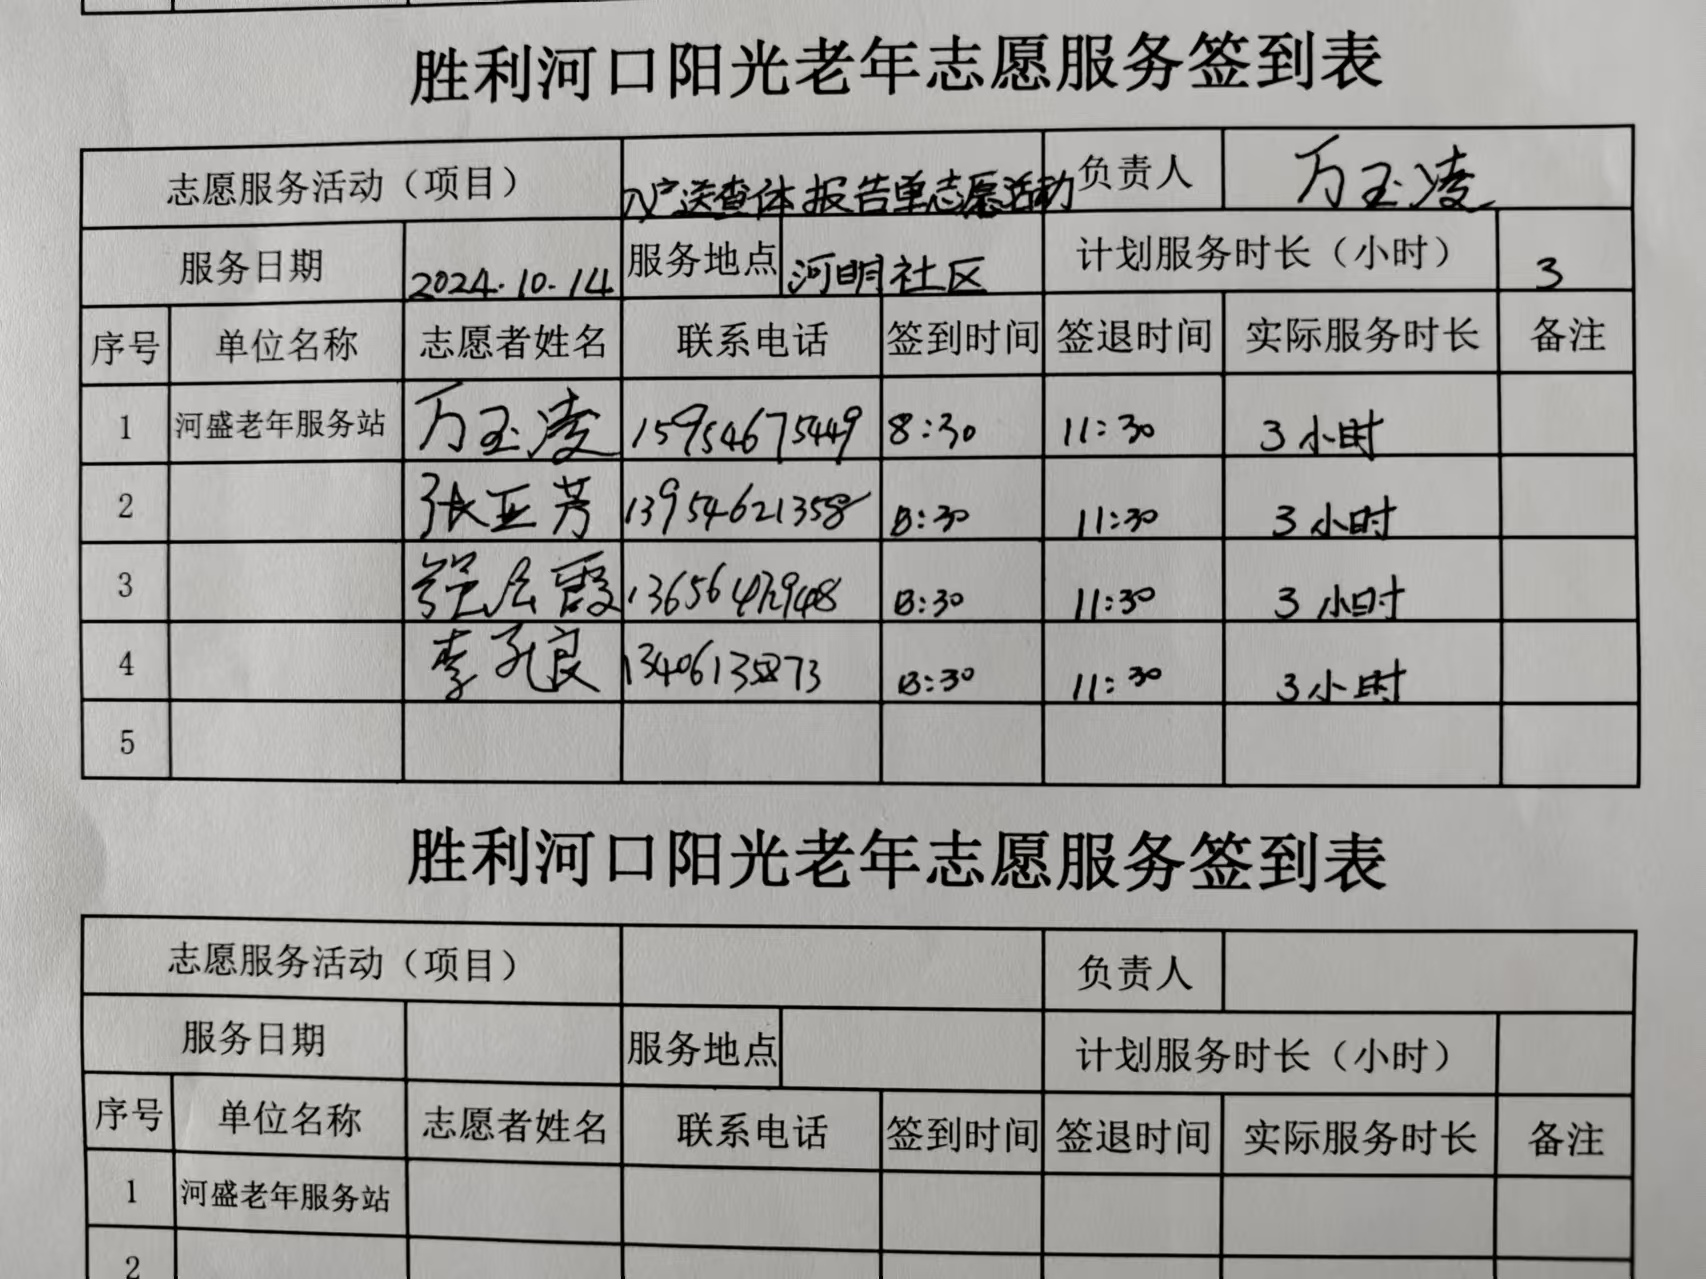 胜利河口阳光老年志愿服务签到表
志愿服务活动（项目） 入户送查体报告单志愿活动 负责人 万玉凌
服务日期 2024.10.14 服务地点 河明社区 计划服务时长（小时） 3
序号 单位名称 志愿者姓名 联系电话 签到时间 签退时间 实际服务时长 备注
1 河盛老年服务站 万玉凌 15954675449 8:30 11:30 3小时
2 张亚芳 13954621358 8:30 11:30 3小时
3 霞 8:30 11:30 3小时
4 李孔良 8:30 11:30 3小时
5
胜利河口阳光老年志愿服务签到表
志愿服务活动（项目） 负责人
服务日期 服务地点 计划服务时长（小时）
序号 单位名称 志愿者姓名 联系电话 签到时间 签退时间 实际服务时长 备注
1 河盛老年服务站
2